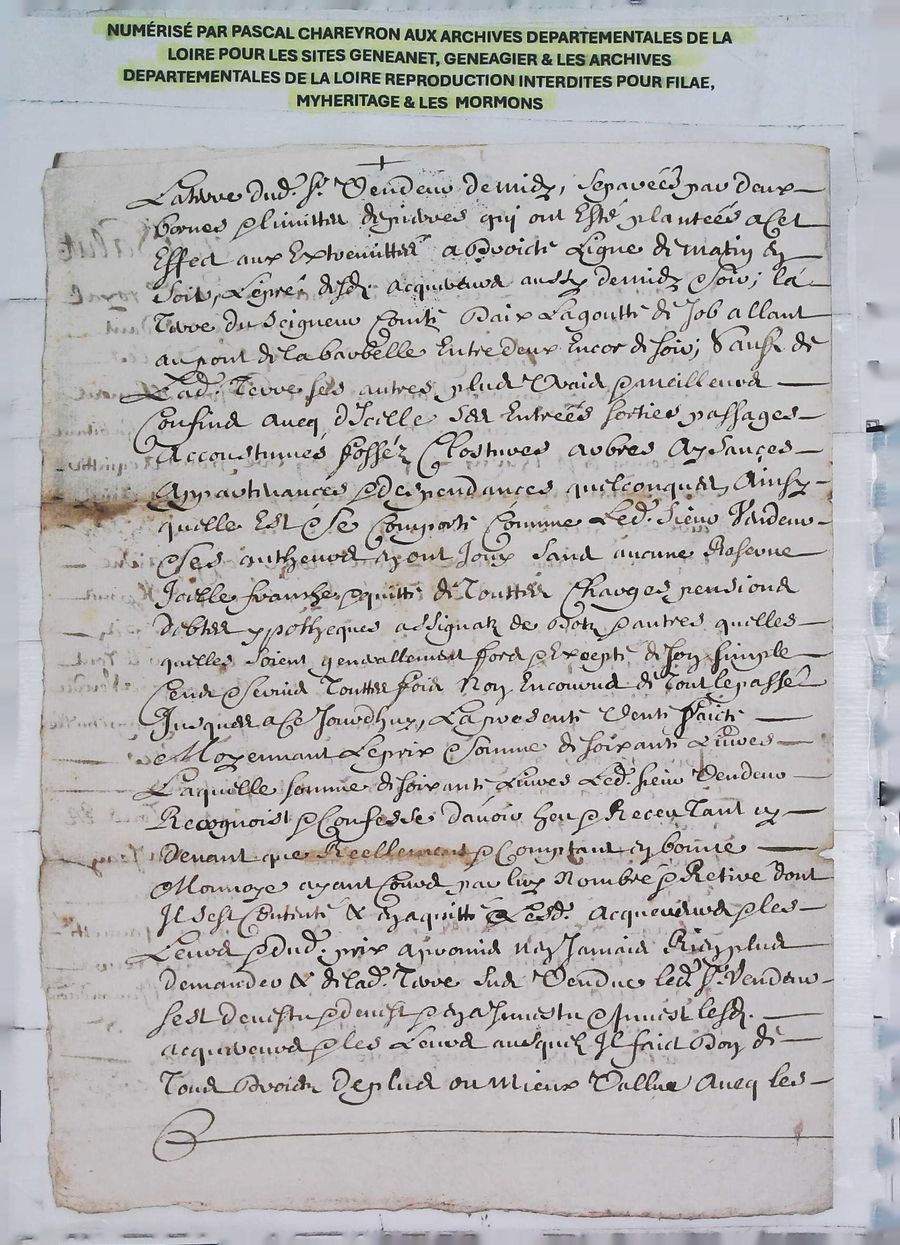 NUMÉRISÉ PAR PASCAL CHAREYRON AUX ARCHIVES DEPARTEMENTALES DE LA
LOIRE POUR LES SITES GENEANET, GENEAGIER & LES ARCHIVES
DEPARTEMENTALES DE LA LOIRE REPRODUCTION INTERDITES POUR FILAE,
MYHERITAGE & LES MORMONS
La terre dud. Sr. Vendeur de midy, separées par deux
bornes & limittes de pierres qui ont Esté plantées a Cet
Effect aux Extremittés a droicte Ligne de matin en
Soir, Le pré desd. acquereurs aussy de midy & Soir; la
Terre du Seigneur Comte Daix La goutte de Job allant
au pont de la barbelle Entre deux Encor de soir; Sauf de
Lad. Terre ses autres plus Vrais & meilleurs
Confins aveq d'Icelle ses Entrées sorties passages
Accoustumés fosséz Clostures arbres Aysances
Appartenances & despendances quelconques, Ainsy
quelle Est & se Comporte Comme Led. Sieur Vendeur
& ses autheurs ayont Jouy sans aucune Reserve
Icelle franche & quitte de Touttes Charges pensions
debtes ypotheques assignatz de dotz & autres quelles
quelles Soient generallement fors & Excepté de son Simple
Cens & Servis Touttes fois Non Encourus de Tout le passé
Jusques a Ce Jourdhuy, La presente Vente faicte
Moyennant Le prix & somme de soixante Livres
Laquelle somme de soixante Livres Led. sieur Vendeur
Recognoist & Confesse d'avoir heu & Receu Tant cy
Devant que Reellement & Comptant en bonne
Monnoye ayant Cours par luy Nombré & Retiré dont
Il s'est Contenté & en a quitté Lesd. acquereurs & les
Leurs & dud. prix a promis n'en Jamais Rien plus
demander & de lad. Terre sus Vendue led. Sr. Vendeur
s'est devestu & devest & en a Investu & Investe lesd.
acquereurs & les Leurs ausquelz Il faict Don de
Tous droictz De plus ou Mieux Vallue Aveq les